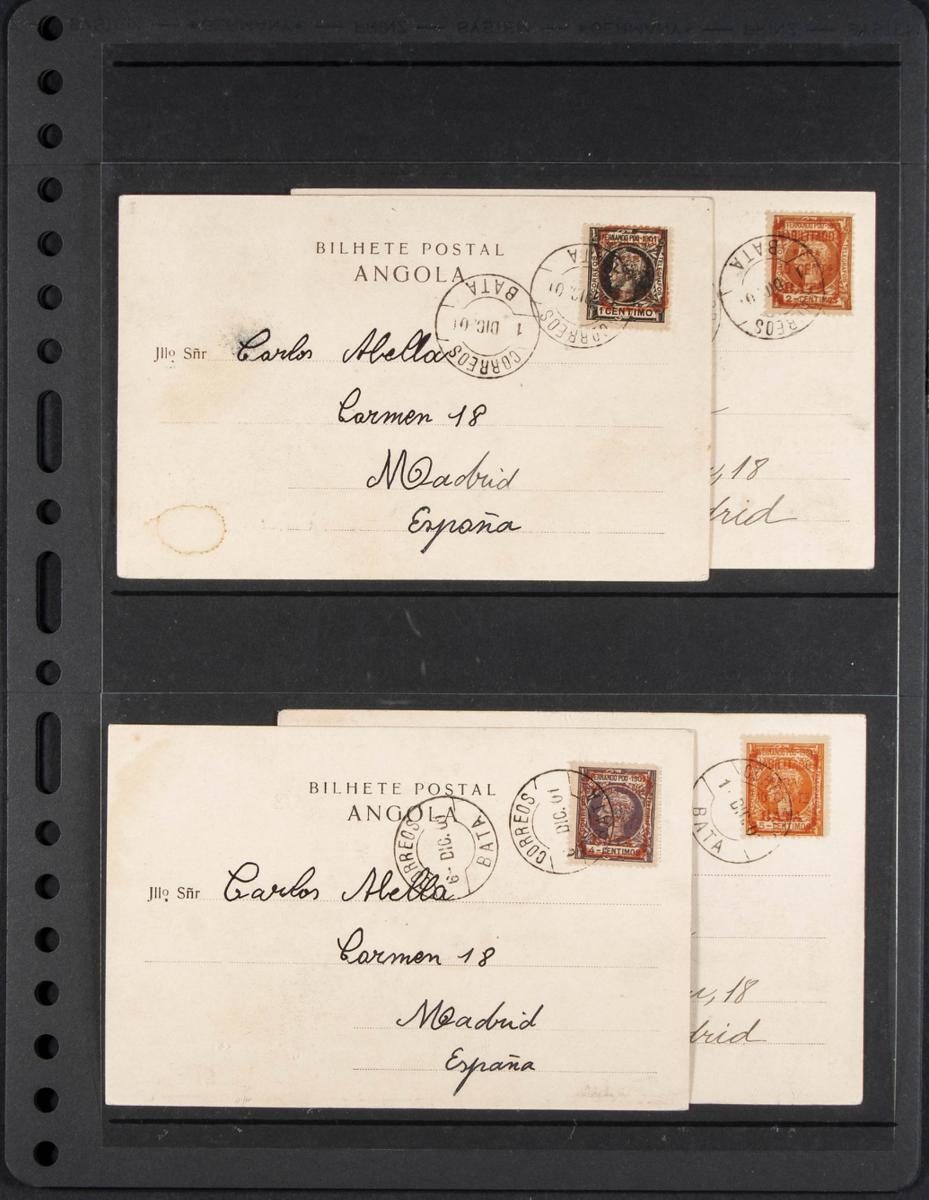 BILHETE POSTAL
ANGOLA
FERNANDO POO-1901
1 CENTIMO
CORREOS
1 DIC. 01
BATA
CORREOS
DIC. 01
Jllo Sñr Carlos Abella
Carmen 18
Madrid
España
2-CENTIMOS
BATA
DIC. 01
CORREOS
18
drid
BILHETE POSTAL
ANGOLA
FERNANDO POO-1901
4-CENTIMOS
CORREOS
DIC. 01
BATA
CORREOS
6- DIC. 01
BATA
Jllo Sñr Carlos Abella
Carmen 18
Madrid
España
5-CENTIMOS
BATA
18
drid